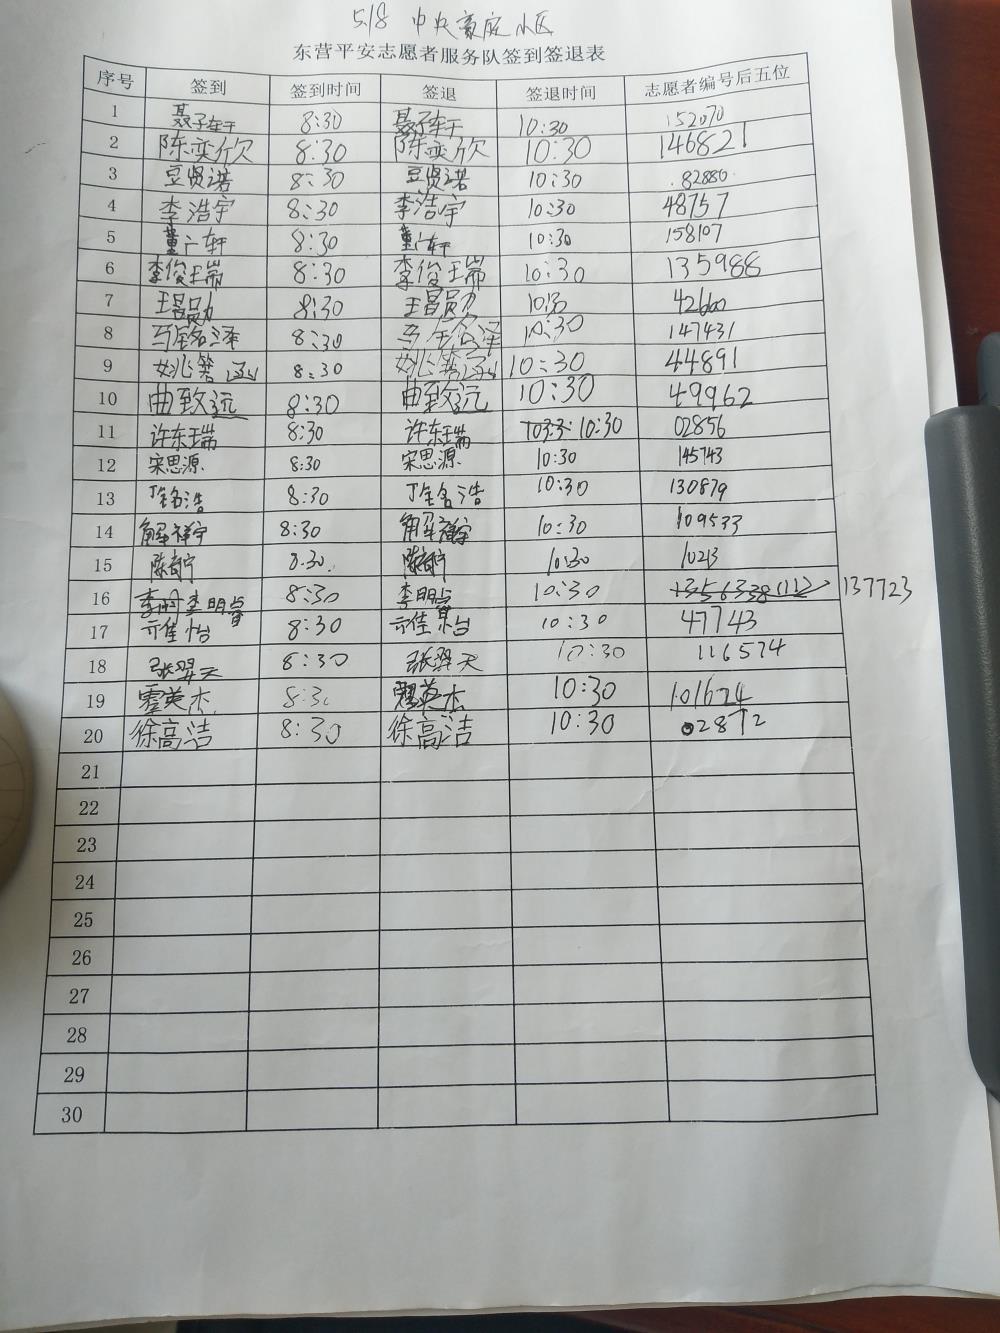 5.18 中央豪庭小区
东营平安志愿者服务队签到签退表
序号 签到 签到时间 签退 签退时间 志愿者编号后五位
1 聂子轩 8:30 聂子轩 10:30 152070
2 陈奕欣 8:30 陈奕欣 10:30 146821
3 豆贤诺 8:30 豆贤诺 10:30 82880
4 李浩宇 8:30 李浩宇 10:30 48757
5 董广轩 8:30 董广轩 10:30 158107
6 李俊瑞 8:30 李俊瑞 10:30 135988
7 王昌勋 8:30 王昌勋 10:30 42600
8 马铭泽 8:30 马铭泽 10:30 147431
9 姚箬涵 8:30 姚箬涵 10:30 44891
10 曲致远 8:30 曲致远 10:30 49962
11 许东瑞 8:30 许东瑞 10:30 02856
12 宋思源 8:30 宋思源 10:30 145743
13 丁铭浩 8:30 丁铭浩 10:30 130879
14 解祥宇 8:30 解祥宇 10:30 109533
15 8:30 10:30 10213
16 李明睿 8:30 李明睿 10:30 137723
17 亓佳怡 8:30 亓佳怡 10:30 47743
18 张羿天 8:30 张羿天 10:30 116574
19 霍英杰 8:30 霍英杰 10:30 101624
20 徐高洁 8:30 徐高洁 10:30 02872
21
22
23
24
25
26
27
28
29
30